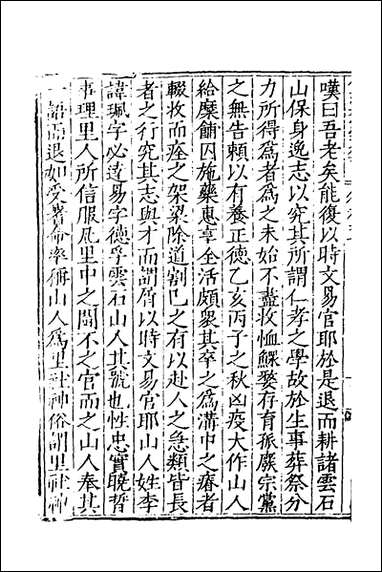 嘆曰吾老矣能復以時文易官耶於是退而耕諸雲石
山保身逸志以究其所謂仁孝之學故於生事葬祭分
力所得為者為之未始不盡收恤鰥嫠存育孤嫠宗黨
之無告頼以有養正德乙亥丙子之秋凶疫大作山人
給糜餔囚施藥惠享全活頗衆其卒之為溝中之瘠者
輟牧而瘞之架梁除道割己之有以赴人之急類皆長
者之行究其志與才而謂屑以時文易官耶山人姓李
諱珮字必達易字德孚雲石山人其號也性忠實曉晢
事理里人所信服凡里中之鬪不之官而之山人奉其
一語而退如受蓍命率稱山人為里社神俗謂里社神